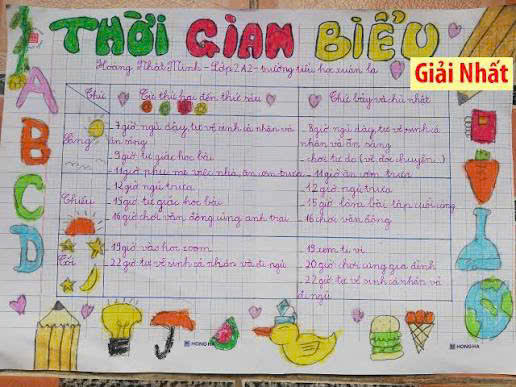 THỜI GIAN BIỂU
Giải Nhất
Hoàng Nhật Minh - Lớp 2A2 - trường tiểu học xuân la
A
B
C
D
Thứ
Từ thứ hai đến thứ sáu
Thứ bảy và chủ nhật
Sáng
- 7 giờ ngủ dậy, tự vệ sinh cá nhân và
ăn sáng
- 9 giờ tự giác học bài
- 11 giờ phụ mẹ việc nhà, ăn cơm trưa
- 8 giờ ngủ dậy, tự vệ sinh cá
nhân và ăn sáng
- chơi tự do (vẽ, đọc chuyện...)
- 11 giờ ăn cơm trưa
Chiều
- 12 giờ ngủ trưa
- 15 giờ tự giác học bài
- 16 giờ chơi vận động cùng anh trai
- 12 giờ ngủ trưa
- 15 giờ làm bài tập cuối cùng
- 16 chơi vận động
Tối
- 19 giờ vào học zoom
- 22 giờ tự vệ sinh cá nhân và đi ngủ
- 19 xem ti vi
- 20 giờ chơi cùng gia đình
- 22 giờ tự vệ sinh cá nhân và
đi ngủ
HONG HA
HONG HA